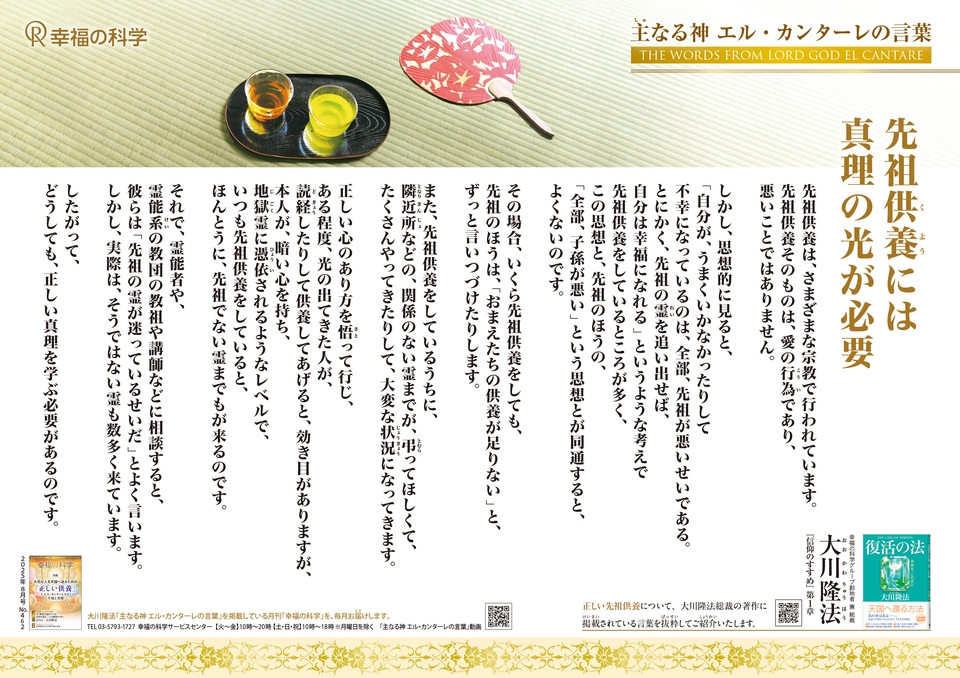 幸福の科学
主なる神 エル・カンターレの言葉
THE WORDS FROM LORD GOD EL CANTARE
先祖供養には
真理の光が必要
先祖供養は、さまざまな宗教で行われています。
先祖供養そのものは、愛の行為であり、
悪いことではありません。
しかし、思想的に見ると、
「自分が、うまくいかなかったりして
不幸になっているのは、全部、先祖が悪いせいである。
とにかく、先祖の霊を追い出せば、
自分は幸福になれる」というような考えで
先祖供養をしているところが多く、
この思想と、先祖のほうの、
「全部、子孫が悪い」という思想とが同通すると、
よくないのです。
その場合、いくら先祖供養をしても、
先祖のほうは、「おまえたちの供養が足りない」と、
ずっと言いつづけたりします。
また、先祖供養をしているうちに、
隣近所などの、関係のない霊までが、弔ってほしくて、
たくさんやってきたりして、大変な状況になってきます。
正しい心のあり方を悟って行じ、
ある程度、光の出てきた人が、
読経したりして供養してあげると、効き目がありますが、
本人が、暗い心を持ち、
地獄霊に憑依されるようなレベルで、
いつも先祖供養をしていると、
ほんとうに、先祖でない霊までもが来るのです。
それで、霊能者や、
霊能系の教団の教祖や講師などに相談すると、
彼らは「先祖の霊が迷っているせいだ」とよく言います。
しかし、実際は、そうではない霊も数多く来ています。
したがって、
どうしても、正しい真理を学ぶ必要があるのです。
幸福の科学グループ創始者 兼 総裁
大川隆法
『信仰のすすめ』第1章
復活の法
大川隆法
天国へ還る方法
正しい先祖供養について、大川隆法総裁の著作に
掲載されている言葉を抜粋してご紹介いたします。
2025年8月号 No.462
幸福の科学
正しい供養
大川隆法「主なる神 エル・カンターレの言葉」を掲載している月刊「幸福の科学」を、毎月お届けします。
TEL 03-5793-1727 幸福の科学サービスセンター【火〜金】10時〜20時【土・日・祝】10時〜18時 ※月曜日を除く 「主なる神 エル・カンターレの言葉」動画